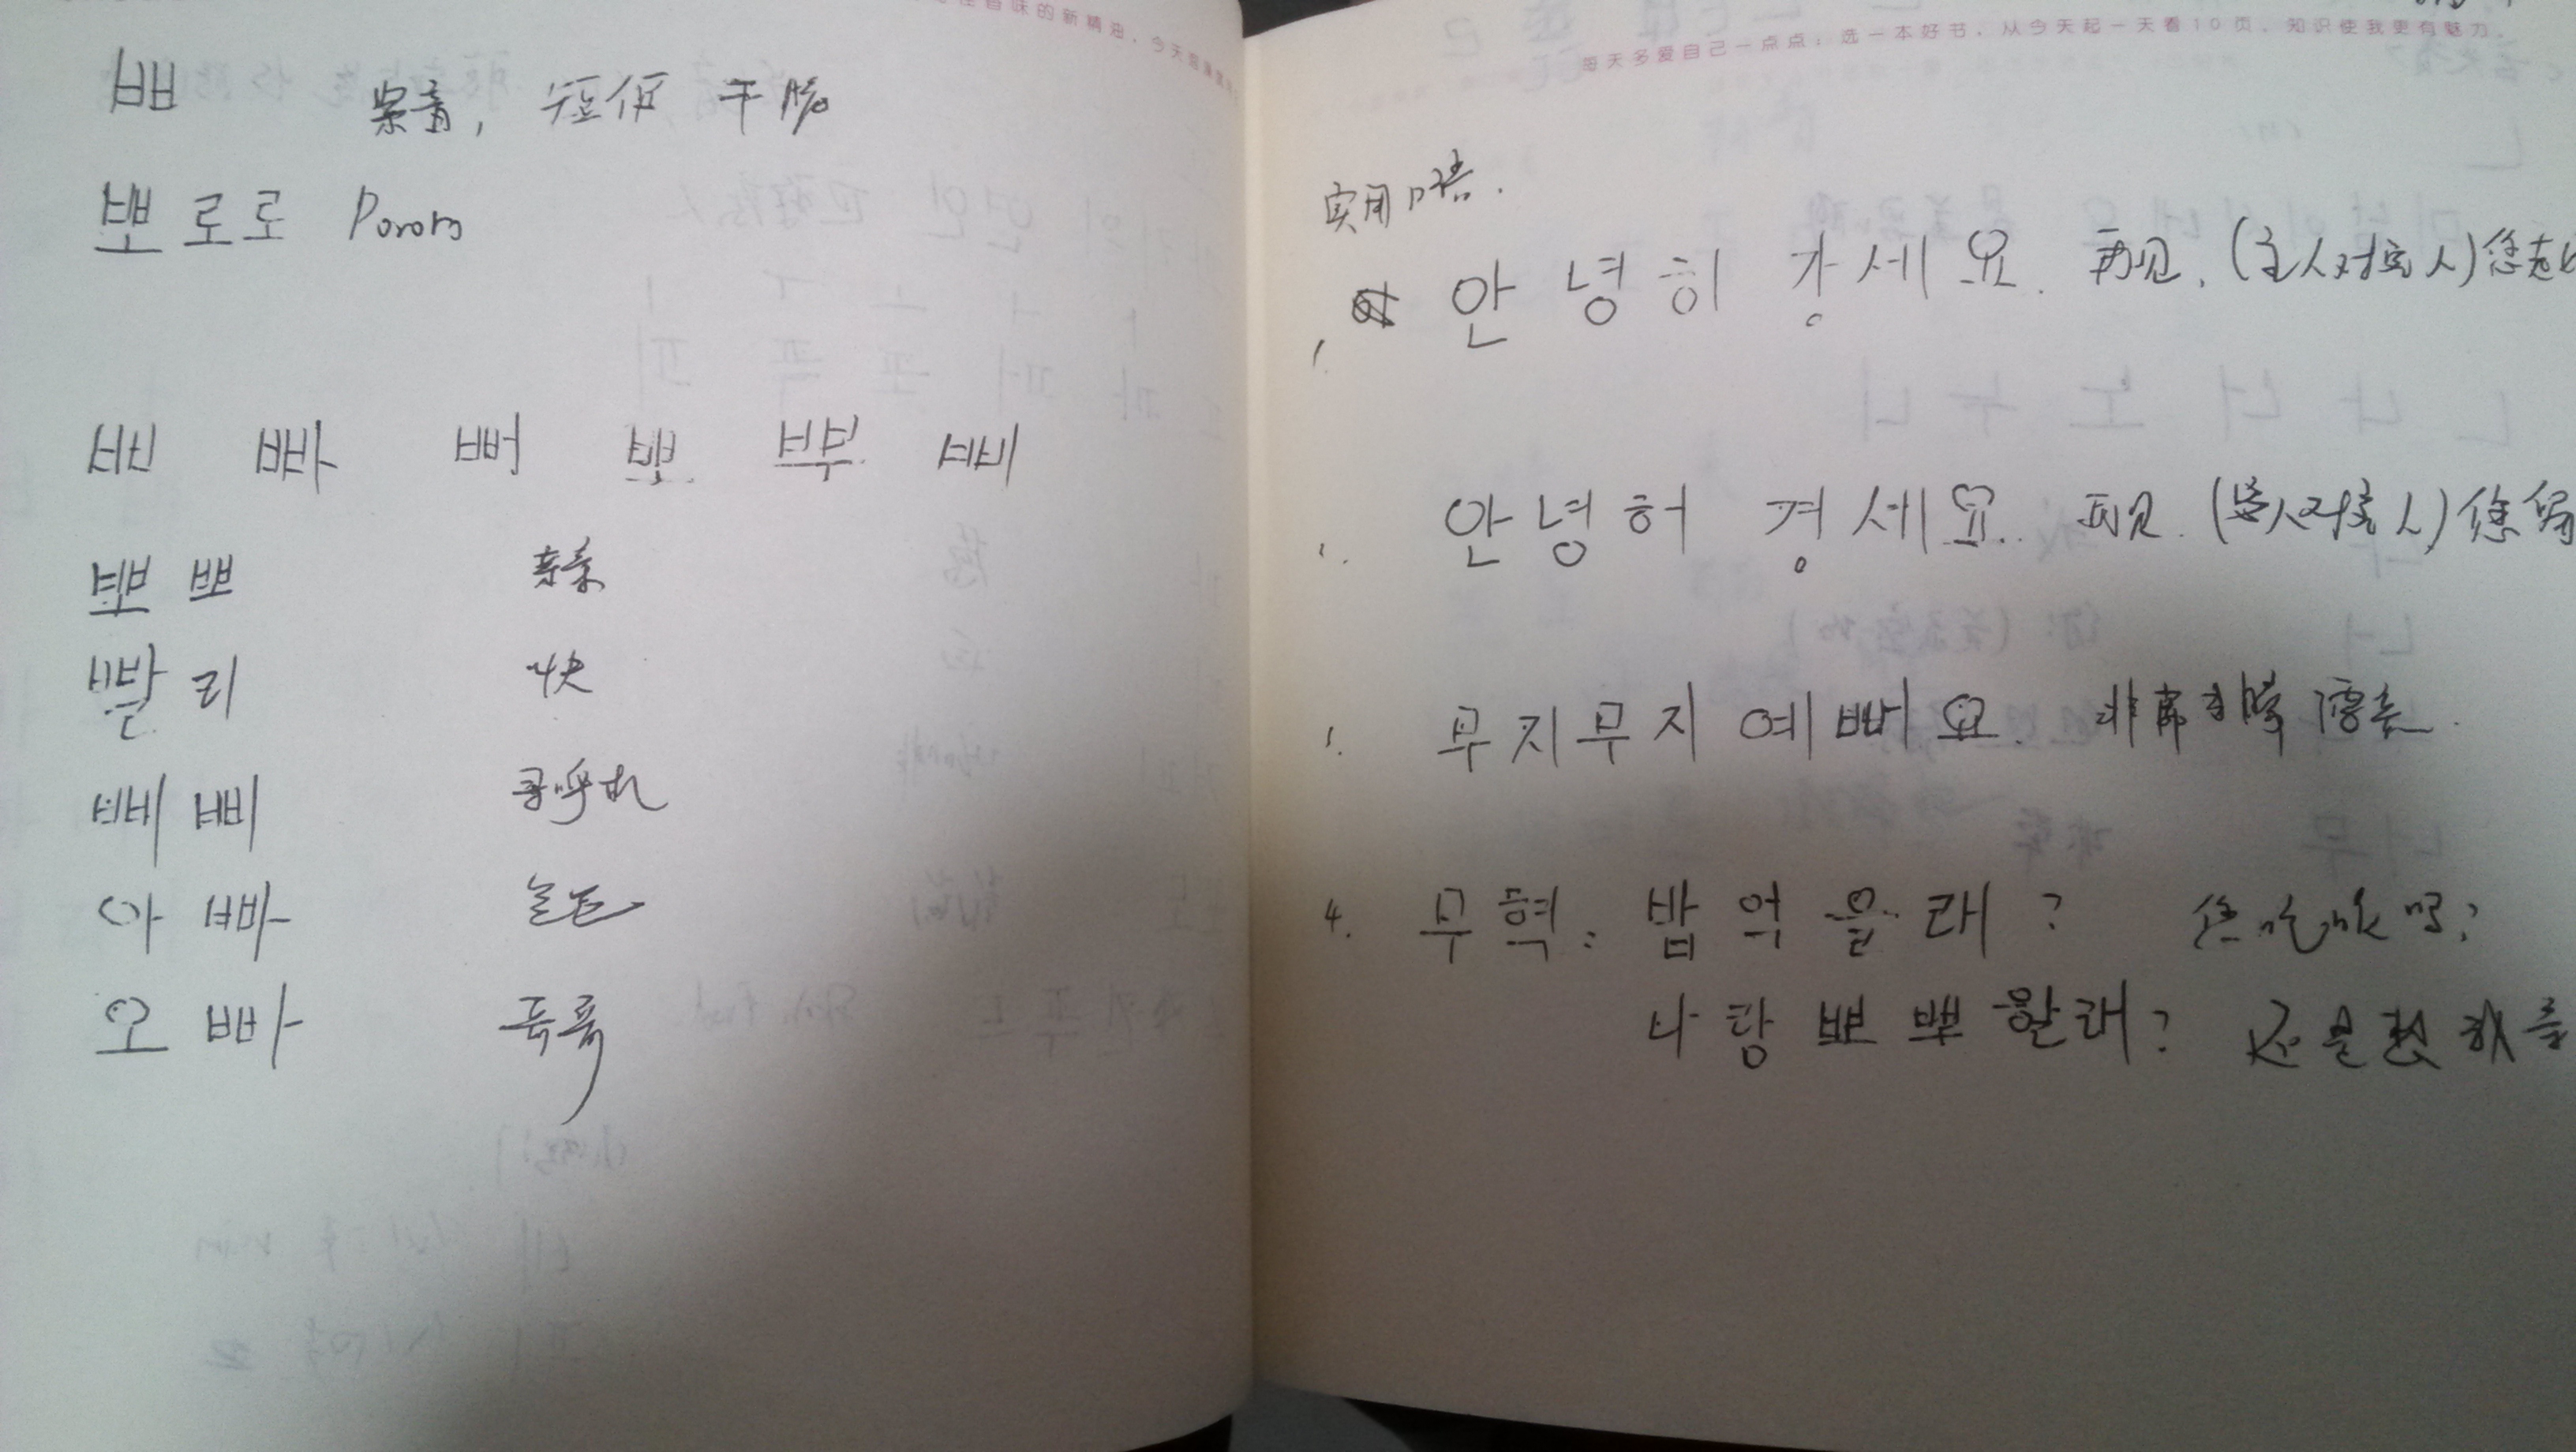 香味的新精油，今天
ㅃ 紧音，短促 干脆
뽀로로 Pororo
ㅃ 빠 뻐 뽀 뿌 삐
뽀뽀 亲亲
빨리 快
삐삐 寻呼机
아빠 爸爸
오빠 哥哥
每天多爱自己一点点：选一本好书，从今天起一天看10页，知识使我更有魅力。
实用口语.
1. 안녕히 강세요. 再见. (主人对客人)您走
안녕허 경세요. 再见. (客人对主人)您留
무지무지 예뻐요. 非常非常漂亮.
4. 무혁: 밥 먹을래? 您吃饭吗?
나랑 뽀뽀할래? 还是想我亲